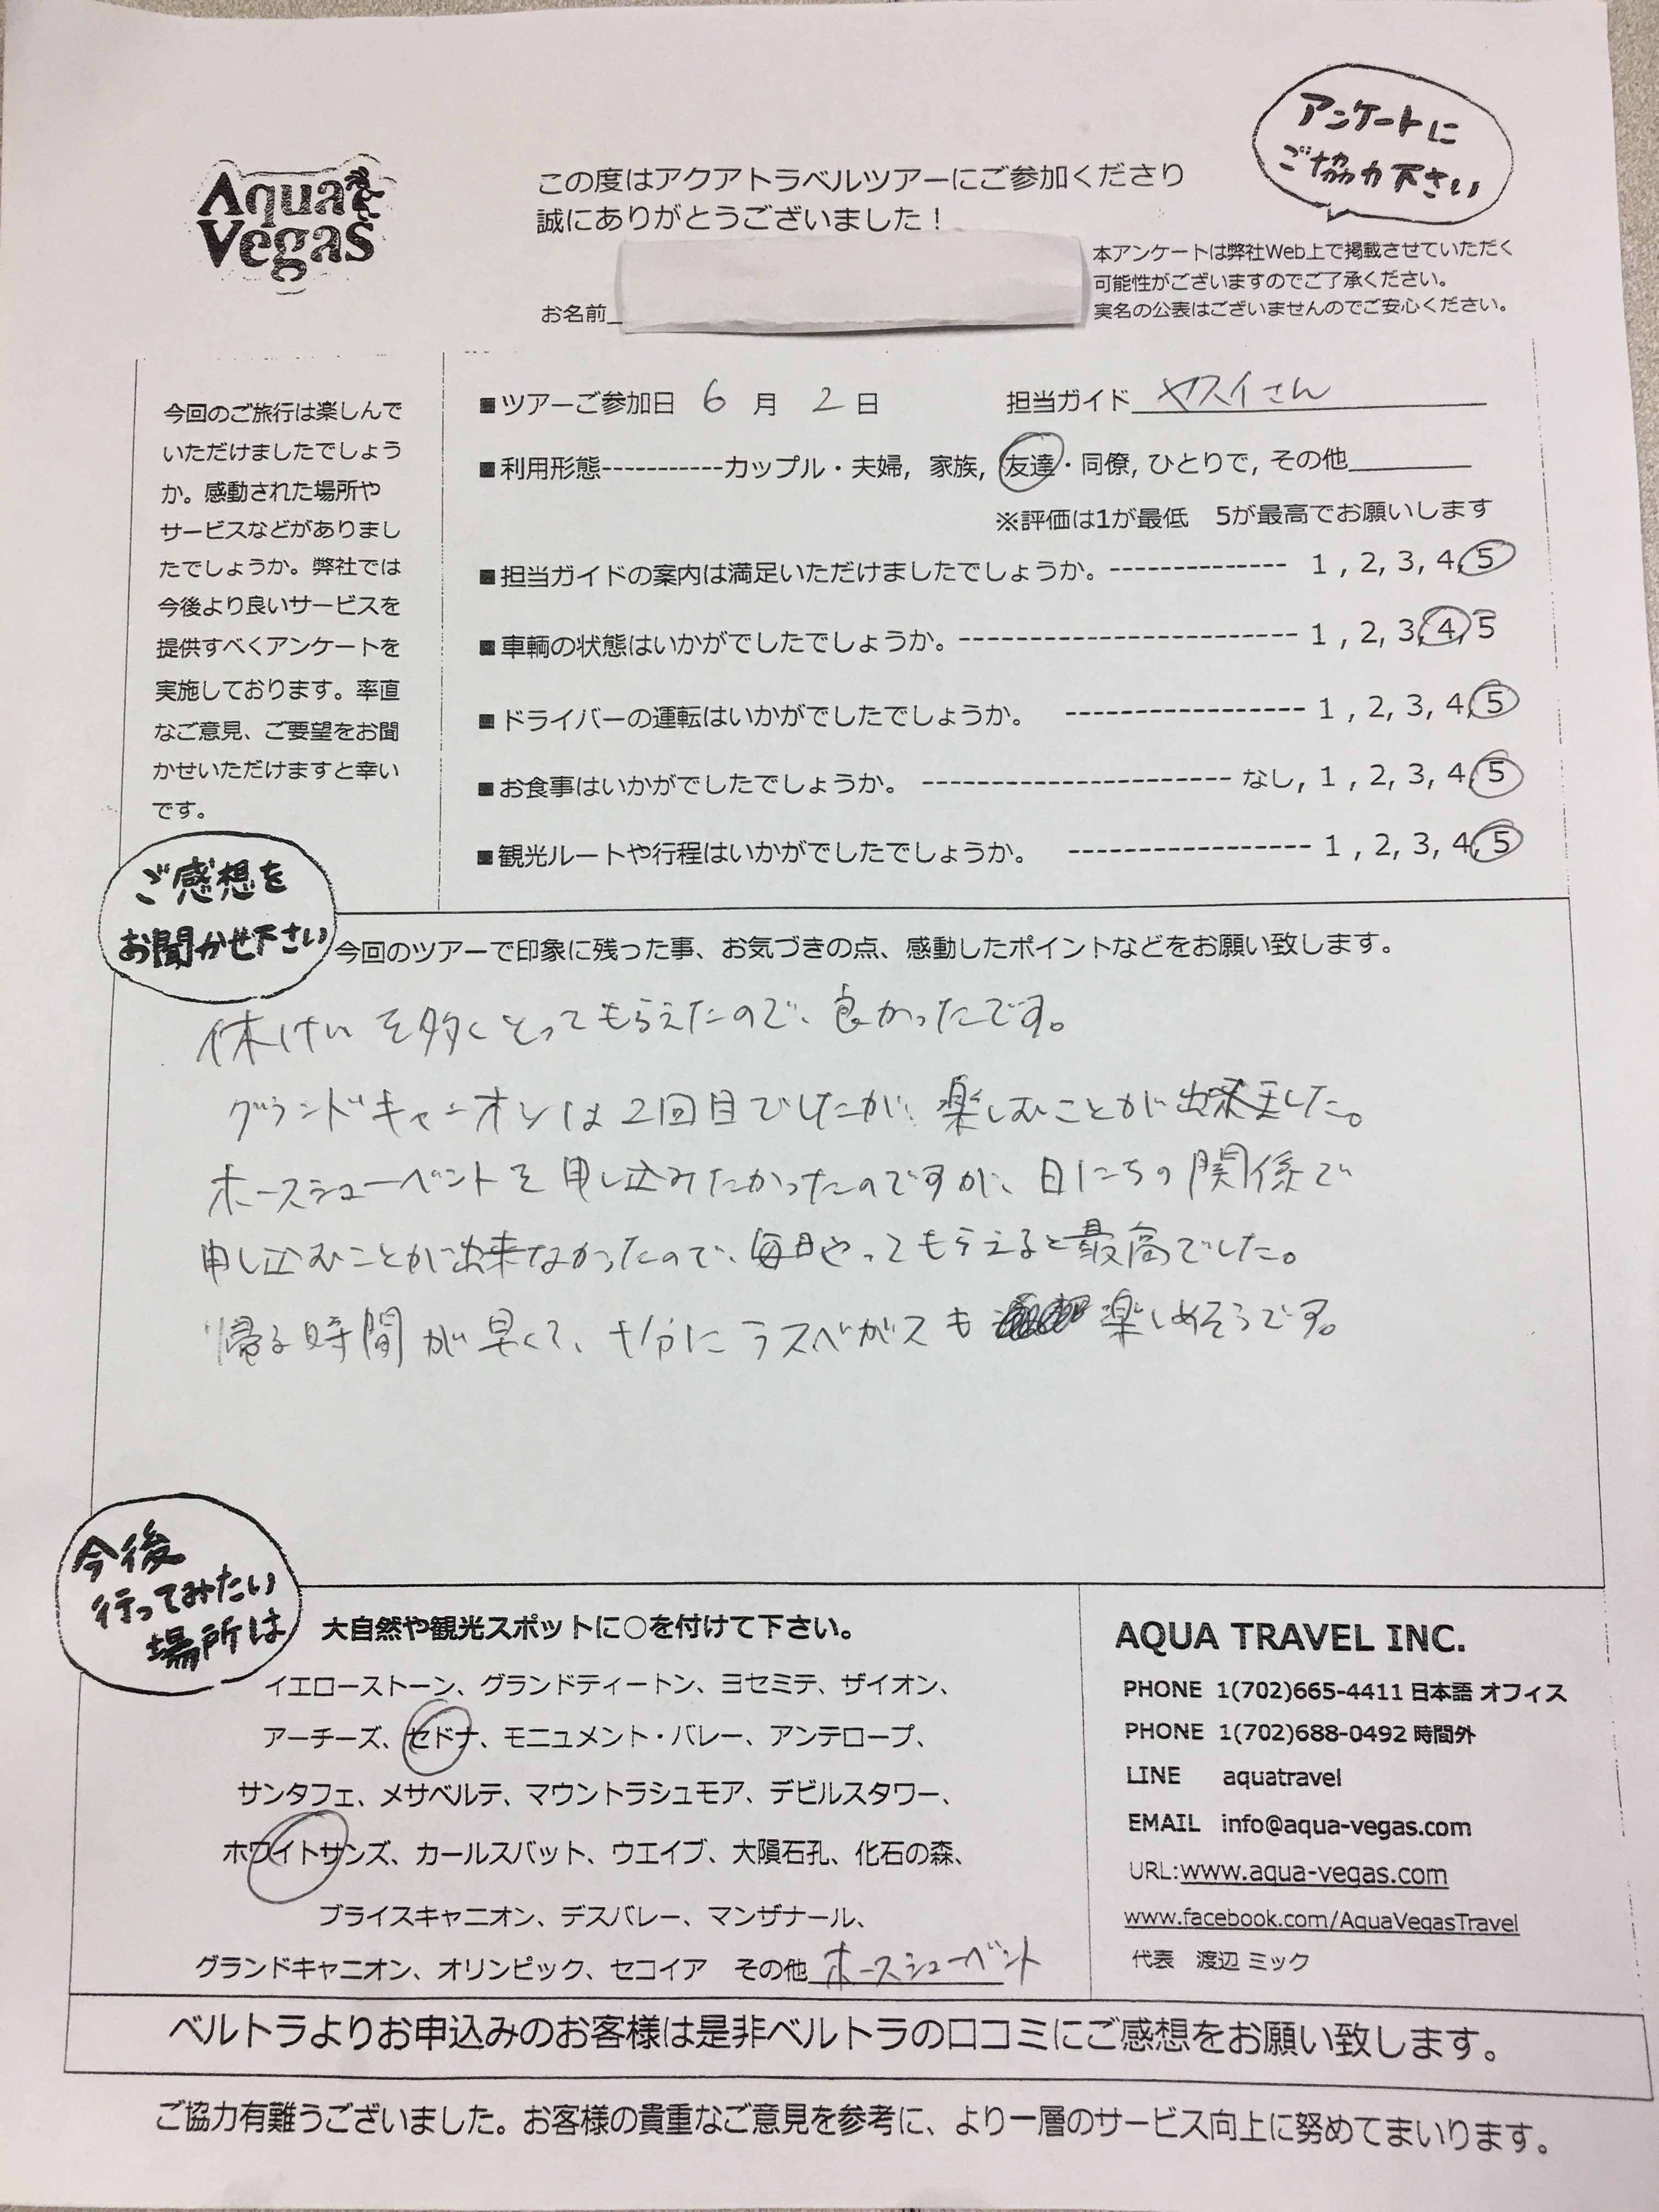 アンケートに
ご協力下さい
Aqua
Vegas
この度はアクアトラベルツアーにご参加くださり
誠にありがとうございました！
本アンケートは弊社Web上で掲載させていただく
可能性がございますのでご了承ください。
実名の公表はございませんのでご安心ください。
お名前
今回のご旅行は楽しんで
いただけましたでしょう
か。感動された場所や
サービスなどがありまし
たでしょうか。弊社では
今後より良いサービスを
提供すべくアンケートを
実施しております。率直
なご意見、ご要望をお聞
かせいただけますと幸い
です。
■ツアーご参加日 6 月 2 日 担当ガイド ヤスイさん
■利用形態-----------カップル・夫婦, 家族, 友達・同僚, ひとりで, その他
※評価は1が最低 5が最高でお願いします
■担当ガイドの案内は満足いただけましたでしょうか。-------------- 1 , 2, 3, 4, 5
■車輌の状態はいかがでしたでしょうか。--------------------------- 1 , 2, 3, 4, 5
■ドライバーの運転はいかがでしたでしょうか。 ------------------- 1 , 2, 3, 4, 5
■お食事はいかがでしたでしょうか。 ------------------------ なし, 1 , 2, 3, 4, 5
■観光ルートや行程はいかがでしたでしょうか。 ------------------- 1 , 2, 3, 4, 5
ご感想を
お聞かせ下さい
今回のツアーで印象に残った事、お気づきの点、感動したポイントなどをお願い致します。
休けいを多くとってもらえたので、良かったです。
グランドキャニオンは2回目でしたが、楽しむことが出来ました。
ホースシューベントを申し込みたかったのですが、日にちの関係で
申し込むことが出来なかったので、毎日やってもらえると最高でした。
帰る時間が早くて、十分にラスベガスも楽しめそうです。
今後
行ってみたい
場所は
大自然や観光スポットに○を付けて下さい。
イエローストーン、グランドティートン、ヨセミテ、ザイオン、
アーチーズ、セドナ、モニュメント・バレー、アンテロープ、
サンタフェ、メサベルデ、マウントラシュモア、デビルスタワー、
ホワイトサンズ、カールスバット、ウエイブ、大隕石孔、化石の森、
ブライスキャニオン、デスバレー、マンザナール、
グランドキャニオン、オリンピック、セコイア その他 ホースシューベント
AQUA TRAVEL INC.
PHONE 1(702)665-4411 日本語 オフィス
PHONE 1(702)688-0492 時間外
LINE aquatravel
EMAIL info@aqua-vegas.com
URL:www.aqua-vegas.com
www.facebook.com/AquaVegasTravel
代表 渡辺 ミック
ベルトラよりお申込みのお客様は是非ベルトラの口コミにご感想をお願い致します。
ご協力有難うございました。お客様の貴重なご意見を参考に、より一層のサービス向上に努めてまいります。